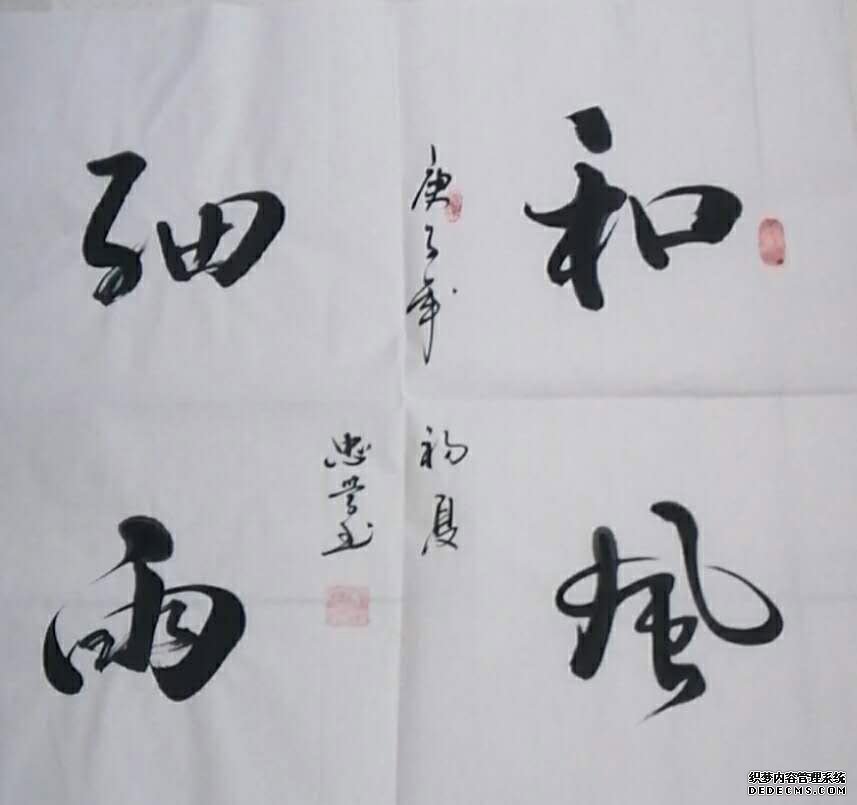 和風
細雨
庚子年
初夏
忠
织梦内容管理系统
DEDECMS.COM